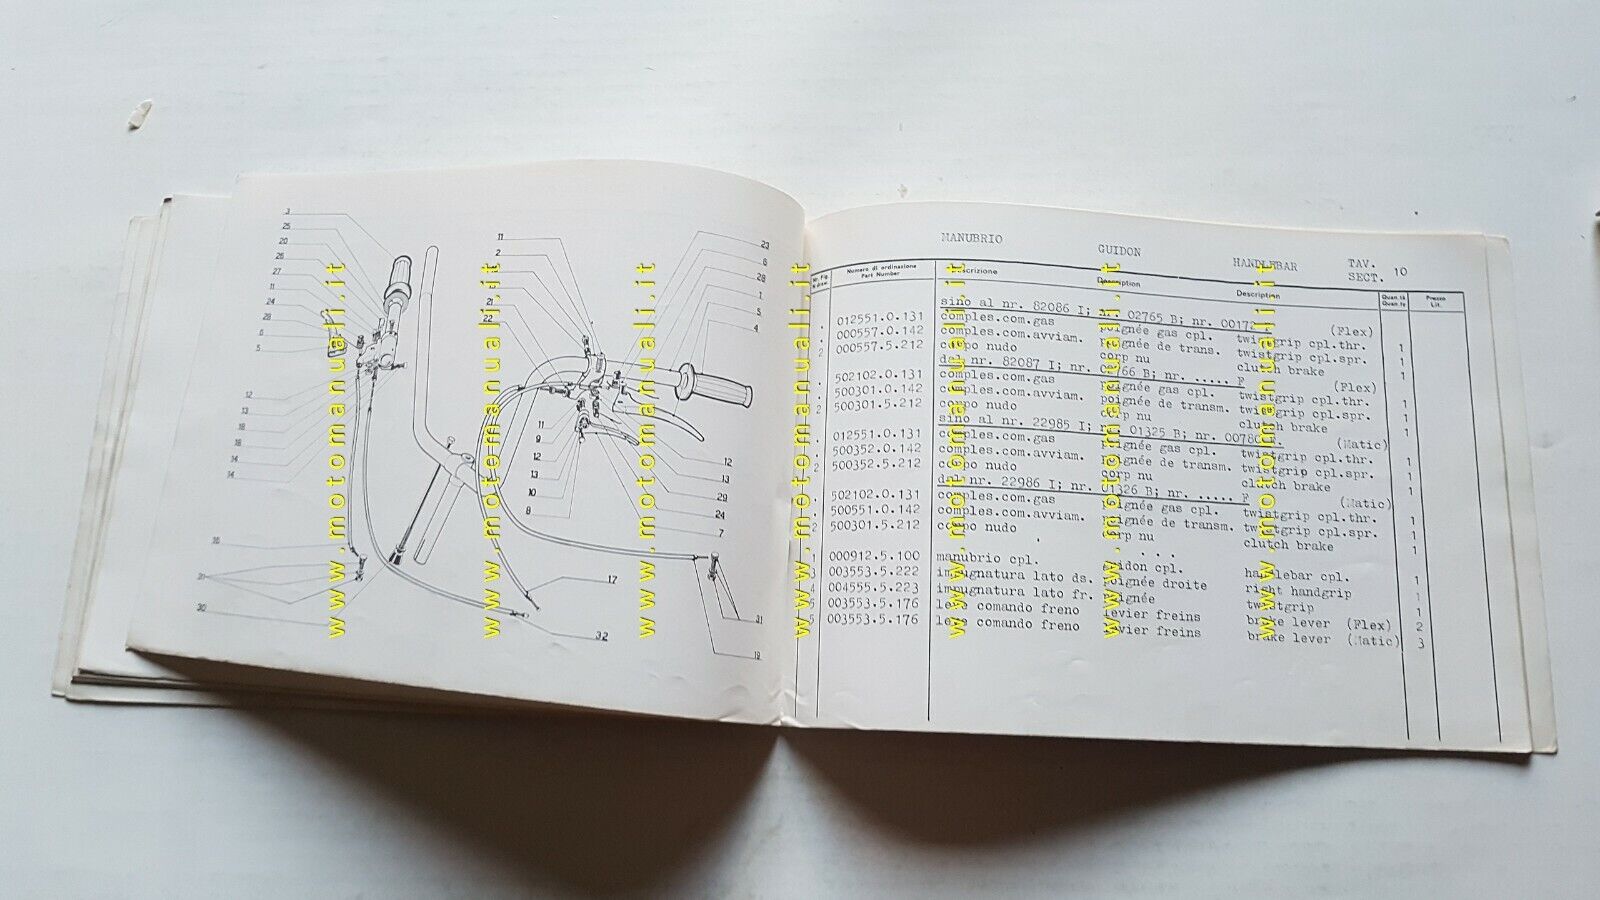 3
25
20
26
27
11
24
28
6
5
12
13
18
16
15
14
30
11
2
21
22
11
9
12
13
10
8
17
32
23
6
28
1
5
4
12
13
29
24
7
31
19
www.motomanuali.it
www.motomanuali.it
www.motomanuali.it
www.motomanuali.it
www.motomanuali.it
www.motomanuali.it
www.motomanuali.it
MANUBRIO GUIDON HANDLEBAR TAV. SECT. 10
Numero di ordinazione Descrizione Description Description Quan.tà Prezzo
Part Number Quan.te Lit.
sino al nr. 82086 I; nr. 02765 B; nr. 00172
. 012551.0.131 comples.com.gas poignée gas cpl. twistgrip cpl.thr. (Flex) 1
. 000557.0.142 comples.com.avviam. poignée de trans. twistgrip cpl.spr. 1
2 000557.5.212 corpo nudo corp nu clutch brake 1
dal nr. 82087 I; nr. 02766 B; nr. ..... F
. 502102.0.131 comples.com.gas poignée gas cpl. twistgrip cpl.thr. (Flex) 1
. 500301.0.142 comples.com.avviam. poignée de transm. twistgrip cpl.spr. 1
2 500301.5.212 corpo nudo corp nu clutch brake 1
sino al nr. 22985 I; nr. 01325 B; nr. 00780
. 012551.0.131 comples.com.gas poignée gas cpl. twistgrip cpl.thr. (Matic) 1
. 500352.0.142 comples.com.avviam. poignée de transm. twistgrip cpl.spr. 1
2 500352.5.212 corpo nudo corp nu clutch brake 1
dal nr. 22986 I; nr. 01326 B; nr. ..... F
. 502102.0.131 comples.com.gas poignée gas cpl. twistgrip cpl.thr. (Matic) 1
. 500551.0.142 comples.com.avviam. poignée de transm. twistgrip cpl.spr. 1
2 500301.5.212 corpo nudo corp nu clutch brake 1
1 000912.5.100 manubrio cpl. guidon cpl. handlebar cpl. 1
3 003553.5.222 impugnatura lato ds. poignée droite right handgrip 1
4 004555.5.223 impugnatura lato fr. poignée twistgrip 1
5 003553.5.176 leve comando freno levier freins brake lever (Flex) 2
5 003553.5.176 leve comando freno levier freins brake lever (Matic) 3